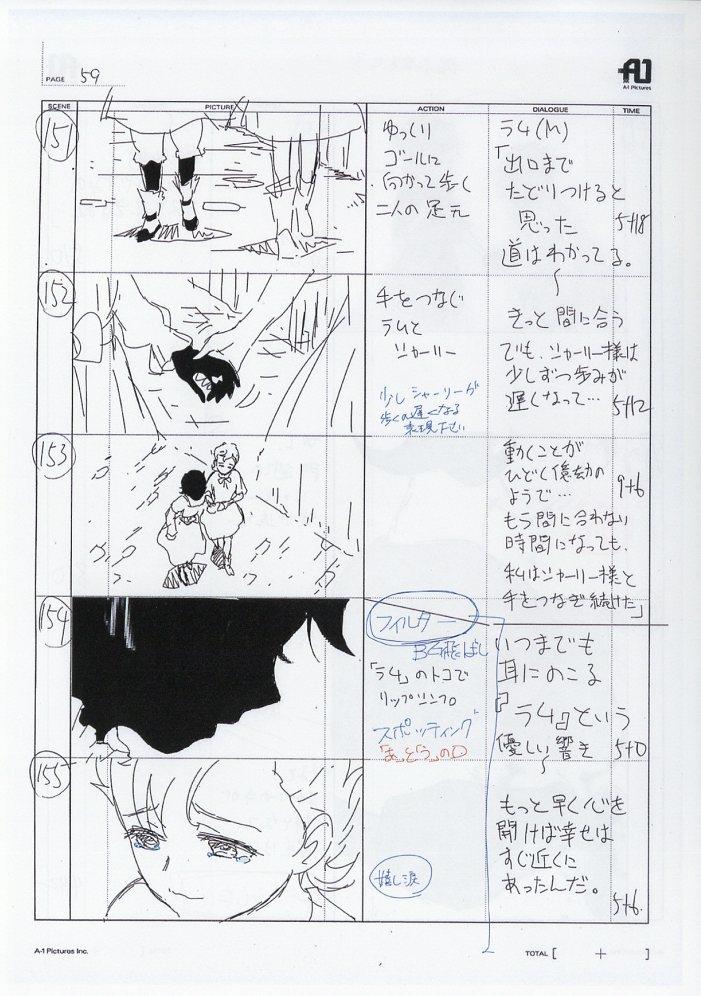 PAGE 59
A-1 Pictures
SCENE PICTURE ACTION DIALOGUE TIME
151
ゆっくり
ゴールに
向かって歩く
二人の足元
ラム(M)
「出口まで
たどりつけると
思った
道はわかってる。
5+18
152
手をつなぐ
ラムと
シャーリー
少しシャーリーが
歩くの遅くなる
表現下さい
きっと間に合う
でも、シャーリー様は
少しずつ歩みが
遅くなって…
5+12
153
動くことが
ひどく億劫の
ようで…
もう間に合わない
時間になっても、
私はシャーリー様と
手をつなぎ続けた」
9+6
154
フィルター
BG飛ばし
「ラム」のトコで
リップシンクロ
スポッティング
いつまでも
耳にのこる
『ラム』という
優しい響き
5+0
155
嬉し涙
もっと早く心を
開けば幸せは
すぐ近くに
あったんだ。
5+6
A-1 Pictures Inc.
TOTAL [ + ]